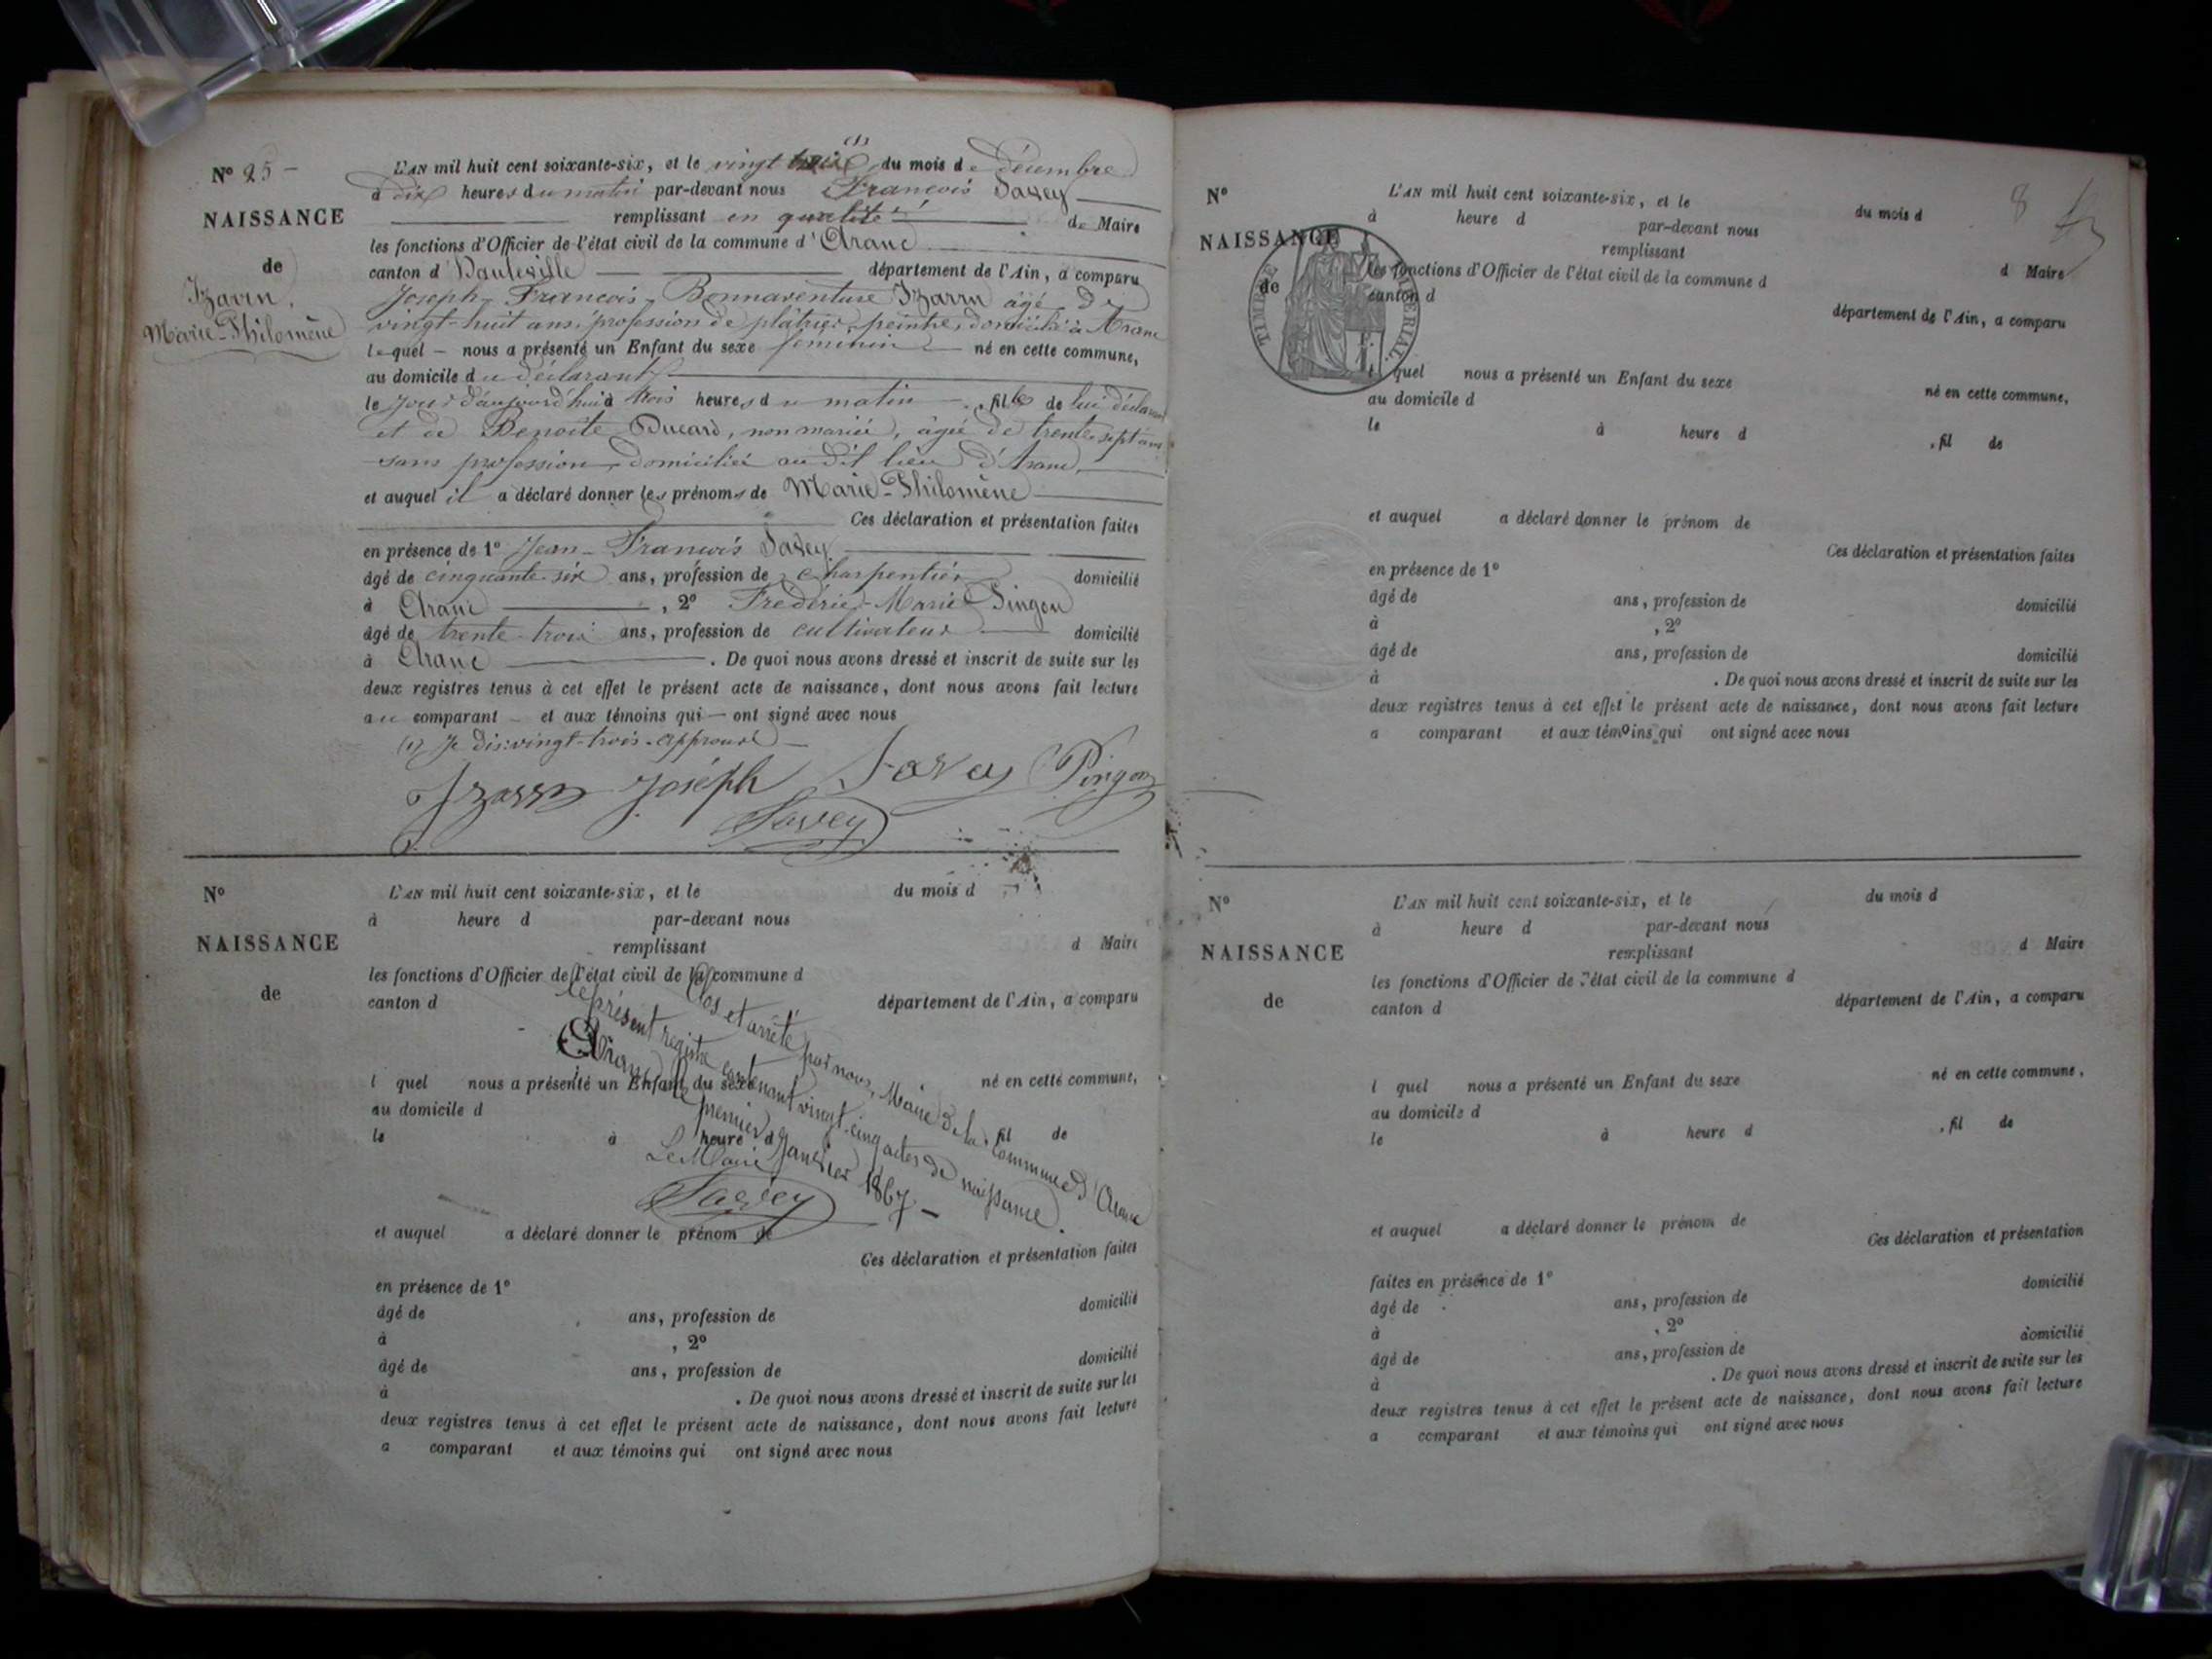 N° 25 —
NAISSANCE
de
Izarn,
Marie-Philomène
(1)
L'AN mil huit cent soixante-six, et le vingt trois du mois de décembre
à dix heures du matin par-devant nous François Savey
remplissant en qualité de Maire
les fonctions d'Officier de l'état civil de la commune d'Aranc
canton d'Hauteville département de l'Ain, a comparu
Joseph-François-Bonnaventure Izarn âgé de
vingt-huit ans, profession de plâtrier, peintre, domicilié à Aranc
lequel — nous a présenté un Enfant du sexe féminin né en cette commune,
au domicile du déclarant
le jour d'aujourd'hui à trois heures du matin, fille de lui déclarant
et de Benoîte Ducard, non mariée, âgée de trente-sept ans
sans profession, domiciliée au dit lieu d'Aranc,
et auquel il a déclaré donner les prénoms de Marie-Philomène
Ces déclaration et présentation faites
en présence de 1° Jean-François Savey
âgé de cinquante-six ans, profession de charpentier domicilié
à Aranc, 2° Frédéric-Marie Pingon
âgé de trente-trois ans, profession de cultivateur domicilié
à Aranc. De quoi nous avons dressé et inscrit de suite sur les
deux registres tenus à cet effet le présent acte de naissance, dont nous avons fait lecture
au comparant et aux témoins qui — ont signé avec nous
(1) Je dis: vingt-trois. approuvé —
Izarn Joseph Savey Pingon
Savey
N°
NAISSANCE
de
L'AN mil huit cent soixante-six, et le du mois d
à heure d par-devant nous
remplissant d Maire
les fonctions d'Officier de l'état civil de la commune d
canton d département de l'Ain, a comparu
l quel nous a présenté un Enfant du sexe né en cette commune,
au domicile d
le à heure d , fil de
Clos et arrêté par nous, Maire de la commune d'Aranc
le présent registre contenant vingt-cinq actes de naissance.
Aranc le premier Janvier 1867 —
Le Maire
Savey
et auquel a déclaré donner le prénom de
Ces déclaration et présentation faites
en présence de 1°
âgé de ans, profession de domicilié
à , 2°
âgé de ans, profession de domicilié
à . De quoi nous avons dressé et inscrit de suite sur les
deux registres tenus à cet effet le présent acte de naissance, dont nous avons fait lecture
a comparant et aux témoins qui ont signé avec nous
8
N°
NAISSANCE
de
TIMBRE IMPÉRIAL
L'AN mil huit cent soixante-six, et le du mois d
à heure d par-devant nous
remplissant d Maire
les fonctions d'Officier de l'état civil de la commune d
canton d département de l'Ain, a comparu
l quel nous a présenté un Enfant du sexe né en cette commune,
au domicile d
le à heure d , fil de
et auquel a déclaré donner le prénom de
Ces déclaration et présentation faites
en présence de 1°
âgé de ans, profession de domicilié
à , 2°
âgé de ans, profession de domicilié
à . De quoi nous avons dressé et inscrit de suite sur les
deux registres tenus à cet effet le présent acte de naissance, dont nous avons fait lecture
a comparant et aux témoins qui ont signé avec nous
N°
NAISSANCE
de
L'AN mil huit cent soixante-six, et le du mois d
à heure d par-devant nous
remplissant d Maire
les fonctions d'Officier de l'état civil de la commune d
canton d département de l'Ain, a comparu
l quel nous a présenté un Enfant du sexe né en cette commune,
au domicile d
le à heure d , fil de
et auquel a déclaré donner le prénom de
Ces déclaration et présentation
faites en présence de 1° domicilié
âgé de ans, profession de
à , 2° domicilié
âgé de ans, profession de
à . De quoi nous avons dressé et inscrit de suite sur les
deux registres tenus à cet effet le présent acte de naissance, dont nous avons fait lecture
a comparant et aux témoins qui ont signé avec nous